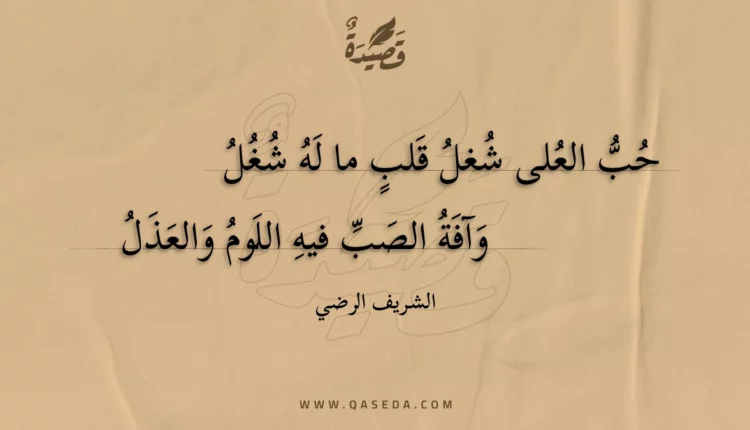 قَصِيدَةٌ
حُبُّ العُلى شُغلُ قَلبٍ ما لَهُ شُغُلُ
وَآفَةُ الصَبِّ فيهِ اللَومُ وَالعَذَلُ
الشريف الرضي
WWW.QASEDA.COM